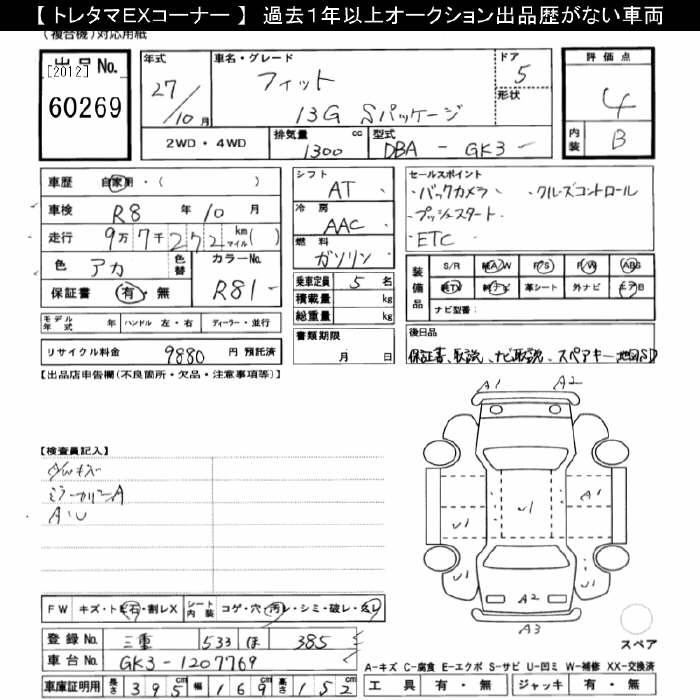 【 トレタマEXコーナー 】 過去1年以上オークション出品歴がない車両
(複合機)対応用紙
出品No. [2012] 60269
年式 27/10月
車名・グレード フィット 13G Sパッケージ
ドア 5
形状
評価点 4
内装 B
2WD・4WD
排気量 1300 cc
型式 DBA - GK3 -
車歴 自家用・( )
車検 R8 年 10 月
走行 9万7千272 km マイル( )
色 アカ 色替 カラーNo. R81-
保証書 有・無
シフト AT
冷房 AAC
燃料 ガソリン
乗車定員 5 名
積載量 kg
総重量 kg
セールスポイント
・バックカメラ ・クルーズコントロール
・プッシュスタート
・ETC
装備品 S/R 純A/W P/S P/W ABS
純TV 純ナビ 革シート 外ナビ エアB
ナビ型番:
モデル年式 年 ハンドル 左・右 ディーラー・並行
リサイクル料金 9880 円 預託済
書類期限 月 日
後日品
保証書、取説、ナビ取説、スペアキー 地図SD
【出品店申告欄(不良箇所・欠品・注意事項等)】
【検査員記入】
A/Wキズ
ミラーカバーA
A・U
A1 A2
U1 U1 A1 U1
A2
A3
スペア
FW キズ・トビ石・割レX シート内装 コゲ・穴・汚レ・シミ・破レ・スレ
登録No. 三重 533 ほ 385
車台No. GK3-1207769
車庫証明用 長さ 395 cm 幅 169 cm 高さ 152 cm
A-キズ C-腐食 E-エクボ S-サビ U-凹ミ W-補修 XX-交換済
工具 有・無 ジャッキ 有・無